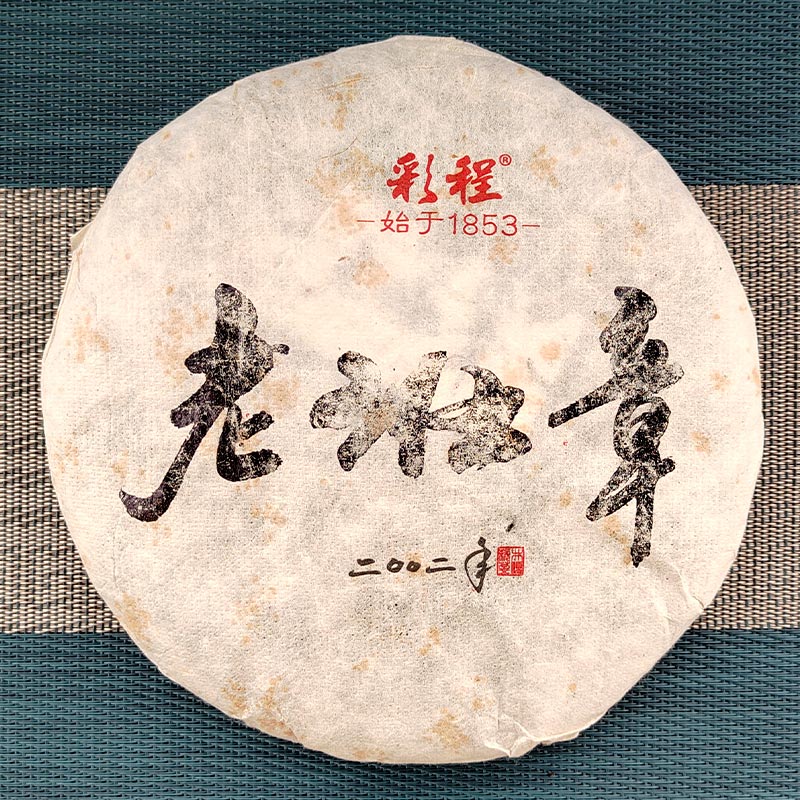 彩程®
–始于1853–
老班章
二〇〇二年